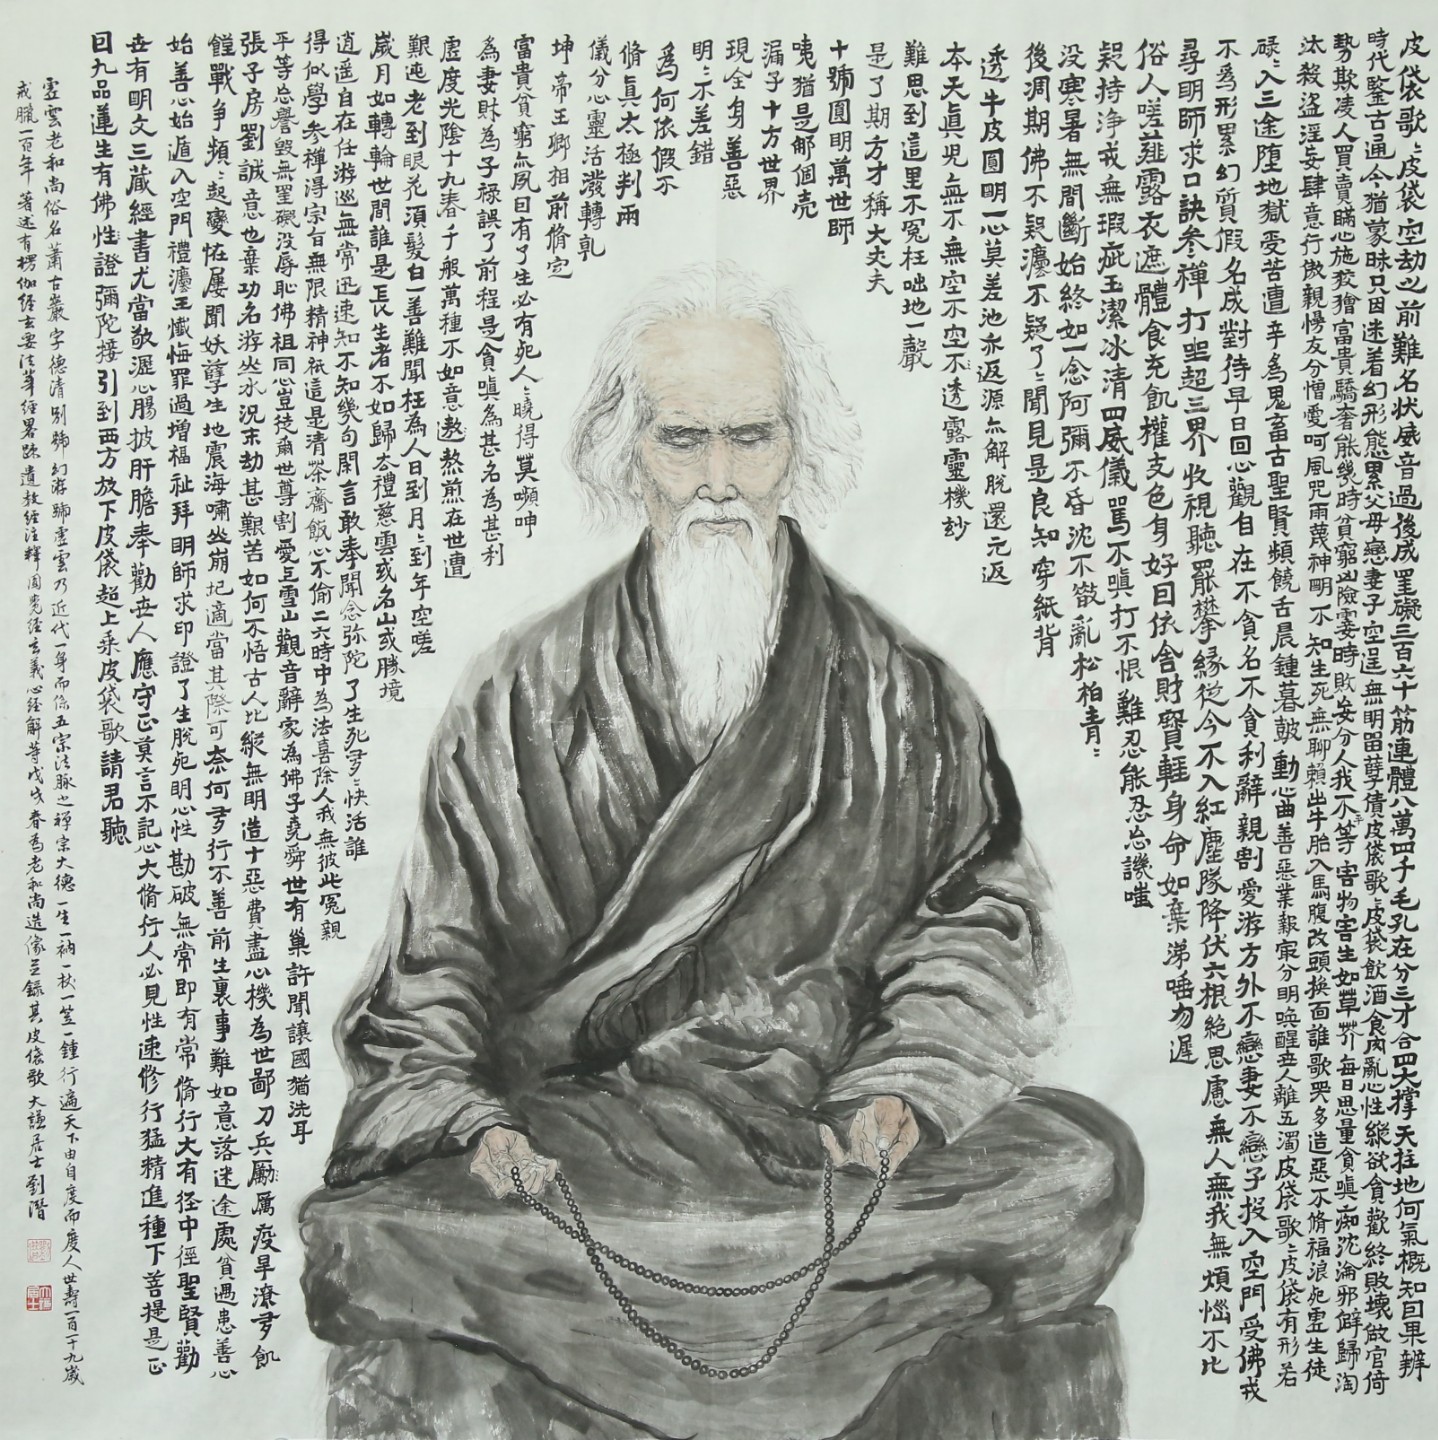 皮袋歌〻皮袋空劫之前難名状威音過後成罣礙三百六十筋連體八萬四千毛孔在分三才合四大撑天拄地何氣概知因果辨
時代鑒古通今猶蒙昧只因迷着幻形態累父母戀妻子空逞無明留孽債皮袋歌〻皮袋飲酒食肉亂心性縱欲貪歡終敗壞做官倚
勢欺凌人買賣瞞心施狡獪富貴驕奢能幾時貧窮凶險霎時敗妄分人我不平等害物害生如草芥每日思量貪嗔痴沈淪邪僻歸淘
汰殺盜淫妄肆意行傲親慢友分憎愛呵風咒雨蔑神明不知生死無聊賴出牛胎入馬腹改頭換面誰歌哭多造惡不脩福浪死虛生徒
碌〻入三途墮地獄受苦遭辛為鬼畜古聖賢頻饒舌晨鐘暮皷動心曲善惡業報㝡分明喚醒世人離五濁皮袋歌〻皮袋有形若
不為形累幻質假名成對待早日回心觀自在不貪名不貪利辭親割愛游方外不戀妻不戀子投入空門受佛戎
尋明師求口訣参禪打坐超三界收視聽罷攀緣從今不入紅塵隊降伏六根絕思慮無人無我無煩惱不比
俗人嗟薤露衣遮體食充飢權支色身好回依舍財寶輕身命如棄涕唾勿遲
疑持浄戒無瑕疵玉潔冰清四威儀罵不嗔打不恨難忍能忍忘譏嗤
没寒暑無間斷始終如一念阿彌不昏沈不散亂松柏青〻
後凋期佛不疑法不疑了〻聞見是良知穿紙背
透牛皮圓明一心莫差池亦返源亦解脫還元返
本天真児無不無空不空不透露靈機妙
難思到這里不冤枉咄地一聲
是了期方才稱大丈夫
十號圓明萬世師
咦猶是那個壳
漏子十方世界
現全身善惡
明〻不差錯
為何依假不
脩真太極判兩
儀分心靈活潑轉乹
坤帝王卿相前脩定
富貴貧窮亦夙因有了生必有死人〻曉得莫嚬呻
為妻財為子祿誤了前程是貪嗔為甚名為甚利
虛度光陰十九春千般萬種不如意遨熬煎在世遭
艱迍老到眼花湏髮白一善難聞枉為人日到月〻到年空嗟
歲月如轉輪世間誰是長生者不如歸去禮慈雲或名山或勝境
逍遥自在任游巡無常迅速知不知幾句閑言敢奉聞念弥陀了生死多〻快活誰
得似學參禪得宗旨無限精神祇這是清茶齋飯心不偷二六時中為法喜除人我無彼此冤親
平等忘譽毀無罣礙没辱恥佛祖同心豈徒爾世尊割愛上雪山觀音辭家為佛子堯舜世有巢許聞讓國猶洗耳
張子房劉誠意也棄功名游山水況末劫甚艱苦如何不悟古人比縱無明造十惡費盡心機為世鄙刀兵厲厲疫旱潦多飢
饉戰争頻〻起變恠屢聞妖孽生地震海嘯山崩圮適當其際可奈何多行不善前生裏事難如意落迷途處貧遇患善心
始善心始遁入空門禮灋王懺悔罪過增福祉拜明師求印證了生脫死明心性勘破無常即有常脩行大有径中徑聖賢勸
世有明文三藏經書尤當敬瀝心腸披肝膽奉勸世人應守正莫言不記心大脩行人必見性速修行猛精進種下菩提是正
因九品蓮生有佛性證彌陀接引到西方放下皮袋超上乘皮袋歌請君聽
虛雲老和尚俗名蕭古巖字德清別號幻游號虛雲乃近代一身而係五宗法脈之禪宗大德一生一衲一杖一笠一鐘行遍天下由自度而度人世壽一百一十九歲
戒臘一百年著述有楞伽經玄要法華經畧疏遺教經注釋圓覺經玄義心經解等戊戌春為老和尚造像並錄其皮袋歌大謙居士劉潛